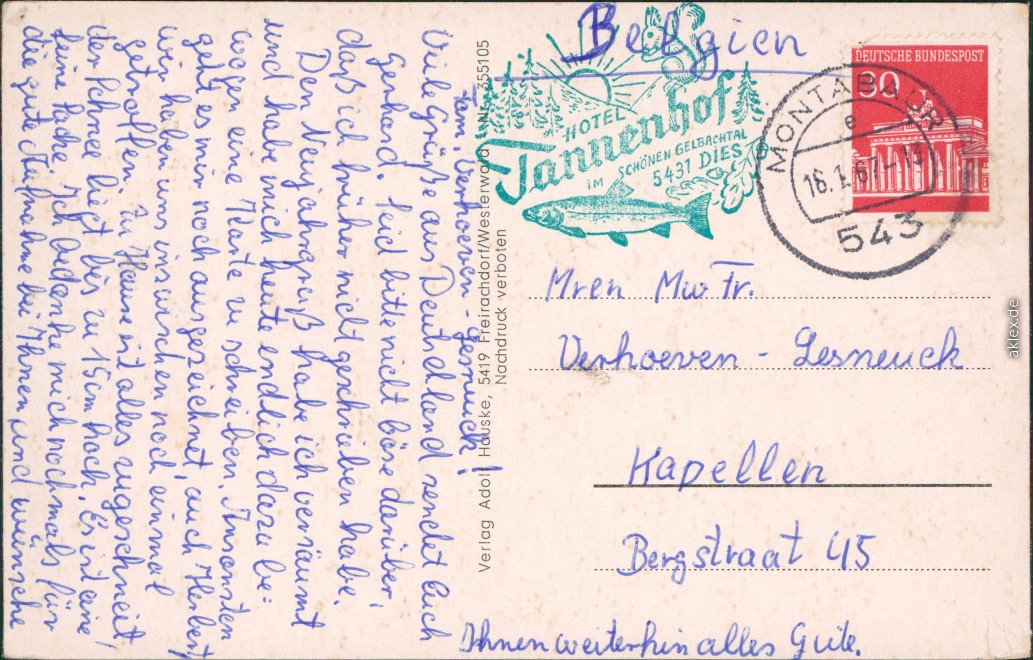 Belgien
HOTEL
Tannenhof
IM SCHÖNEN GELBACHTAL
5431 DIES
DEUTSCHE BUNDESPOST
30
MONTABAUR
e
16.1.67-13
543
Fam. Verhoeven-Lesneuck!
Viele Grüße aus Deutschland sendet Euch
Gerhard. Seid bitte nicht böse darüber,
daß ich früher nicht geschrieben habe.
Den Neujahrsgruß habe ich versäumt
und habe mich heute endlich dazu be=
wogen eine Karte zu schreiben. Ansonsten
geht es mir noch ausgezeichnet, auch Herbert
wir haben uns inzwischen noch einmal
getroffen. Zu Hause ist alles zugeschneit
der Schnee liegt bis zu 15 cm hoch. Es ist eine
feine Sache. Ich bedanke mich nochmals für
die gute Aufnahme bei Ihnen und wünsche
Ihnen weiterhin alles Gute.
Verlag Adolf Hauske, 5419 Freirachdorf/Westerwald Nr. 355105
Nachdruck verboten
Mren Mw Fr.
Verhoeven - Lesneuck
Kapellen
Bergstraat 45
aklex.de